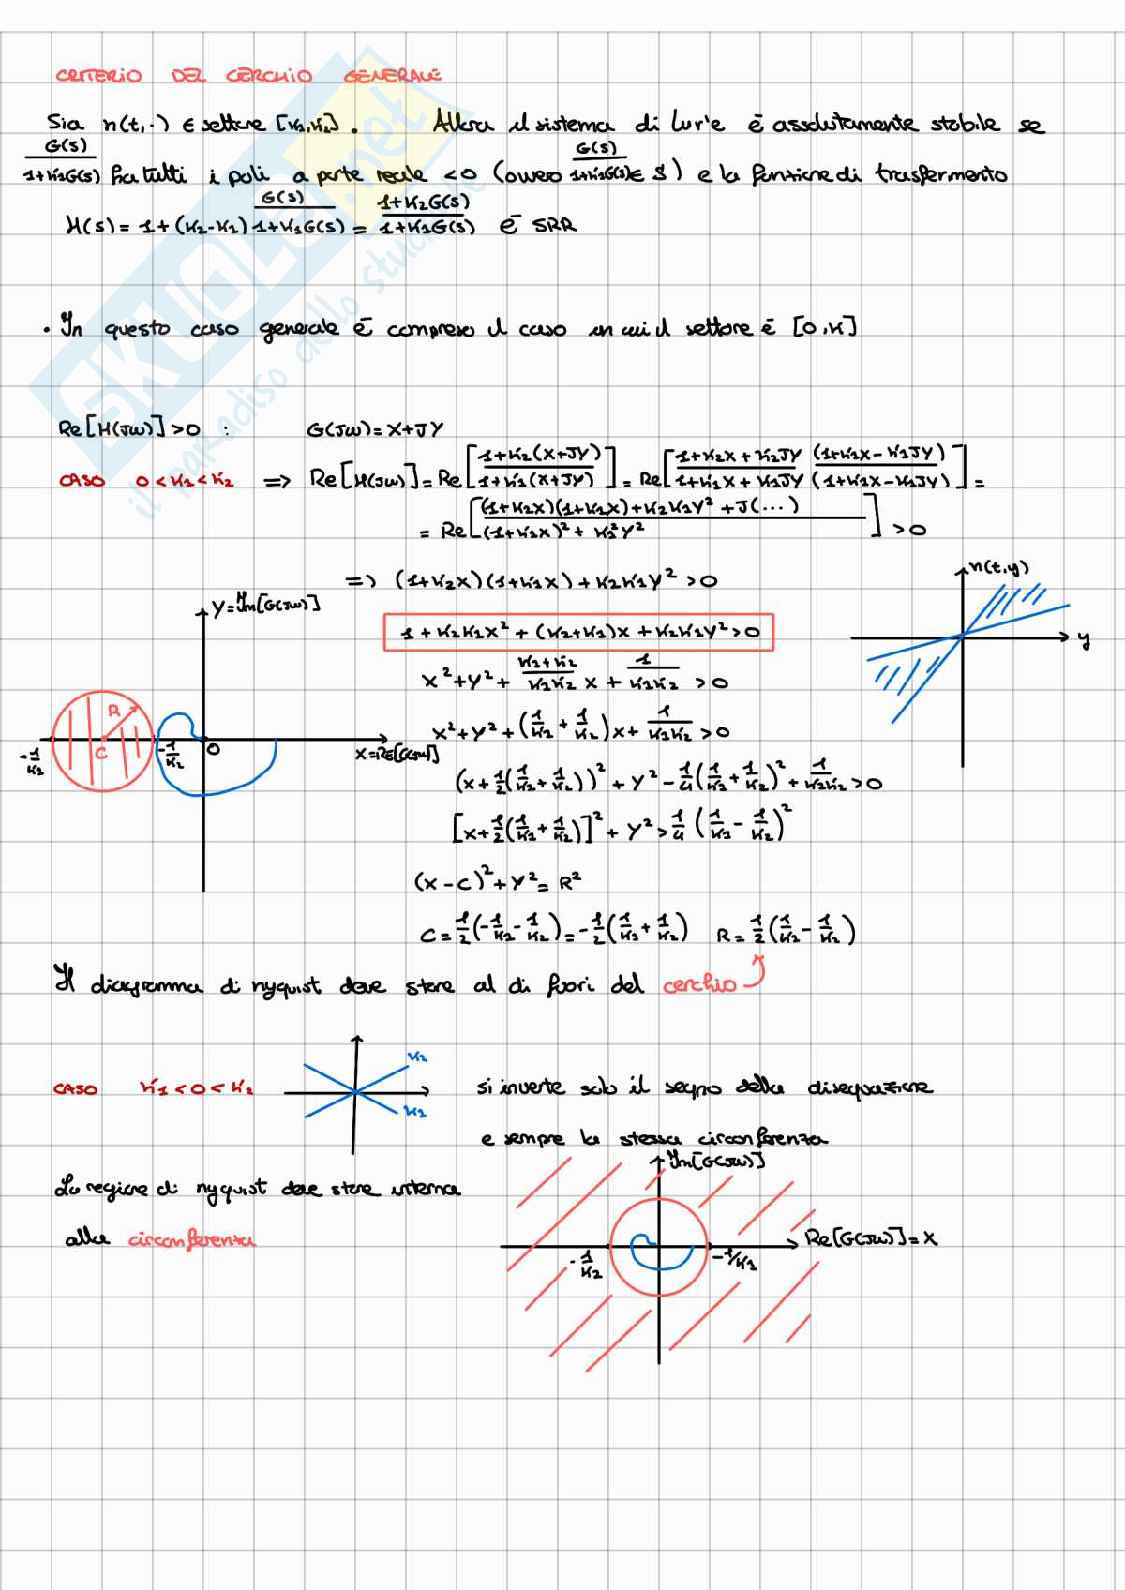 CRITERIO DEL CERCHIO GENERALE
Sia n(t,·) ∈ settore [K1,K2]. Allora il sistema di Lur'e è assolutamente stabile se
G(s)/(1+K1G(s)) ha tutti i poli a parte reale <0 (ovvero G(s)/(1+K1G(s)) ∈ S) e la funzione di trasferimento
H(s) = 1+(K2-K1) G(s)/(1+K1G(s)) = (1+K2G(s))/(1+K1G(s)) è SRR
• In questo caso generale è compreso il caso in cui il settore è [0,K]
Re[H(Jω)]>0 : G(Jω)=X+JY
CASO 0<K1<K2 => Re[H(Jω)] = Re[(1+K2(X+JY))/(1+K1(X+JY))] = Re[(1+K2X+K2JY)/(1+K1X+K1JY) (1+K1X-K1JY)/(1+K1X-K1JY)] =
= Re[((1+K2X)(1+K1X)+K2K1Y²+J(...))/((1+K1X)²+K1²Y²)] >0
=> (1+K2X)(1+K1X)+K2K1Y²>0
n(t,y)
y
Y=Im[G(Jω)]
1+K2K1X²+(K2+K1)X+K2K1Y²>0
X²+Y²+ (K1+K2)/(K1K2) X + 1/(K1K2) >0
R
C
-1/K1
-1/K2
0
X=Re[G(Jω)]
X²+Y²+(1/K1+1/K2)X+1/(K1K2)>0
(X+1/2(1/K1+1/K2))²+Y²-1/4(1/K1+1/K2)²+1/(K1K2)>0
[X+1/2(1/K1+1/K2)]²+Y²>1/4(1/K1-1/K2)²
(X-C)²+Y²=R²
C=1/2(-1/K1-1/K2)=-1/2(1/K1+1/K2) R=1/2(1/K1-1/K2)
Il diagramma di nyquist deve stare al di fuori del cerchio
CASO K1<0<K2
K2
K1
si inverte solo il segno della disequazione
e sempre la stessa circonferenza
La regione di nyquist deve stare interna
alla circonferenza
Im[G(Jω)]
Re[G(Jω)]=X
-1/K2
-1/K1
SKUOLA.net
il paradiso dello studente